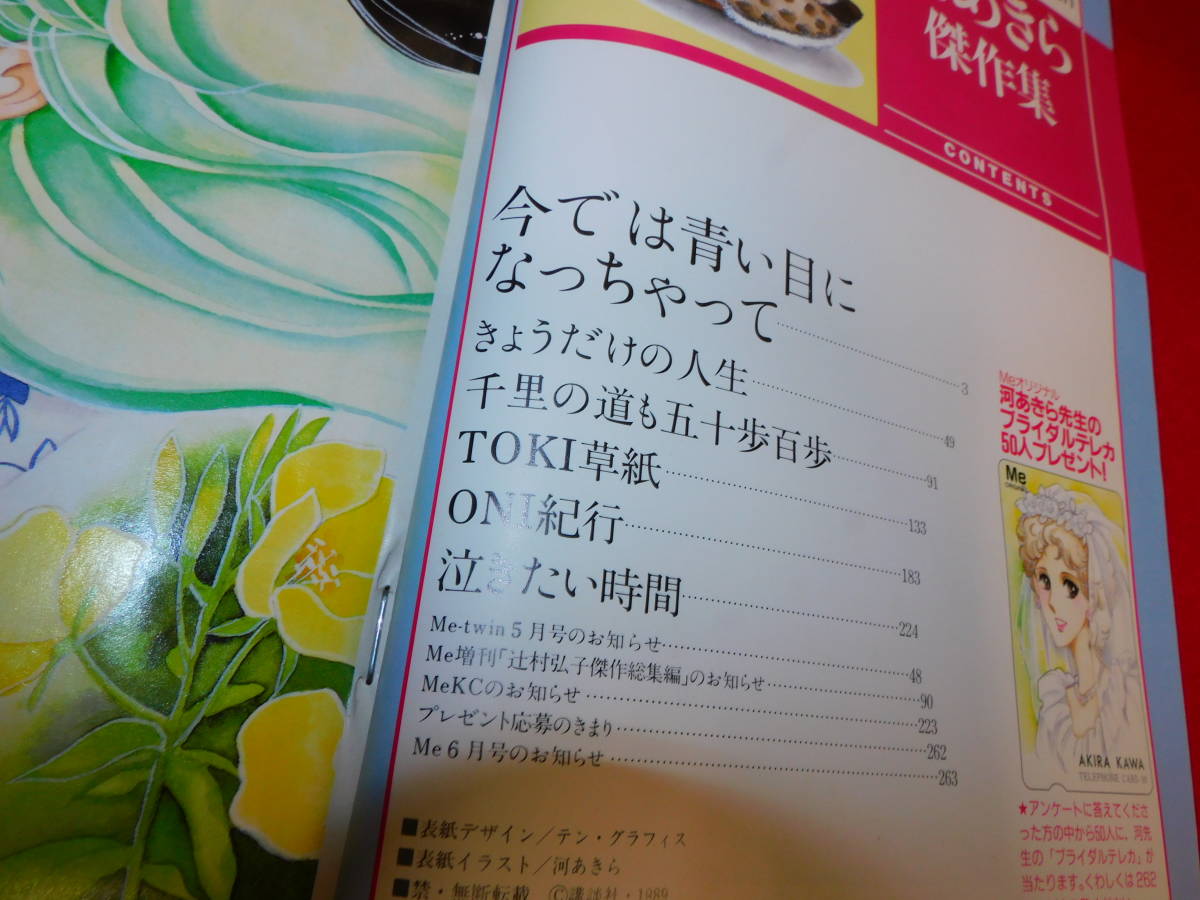 あきら
傑作集
CONTENTS
今では青い目に
なっちゃって……3
きょうだけの人生……49
千里の道も五十歩百歩……91
TOKI草紙……133
ONI紀行……183
泣きたい時間……224
Me-twin5月号のお知らせ……48
Me増刊「辻村弘子傑作総集編」のお知らせ……90
MeKCのお知らせ……223
プレゼント応募のきまり……262
Me6月号のお知らせ……263
■表紙デザイン/テン・グラフィス
■表紙イラスト/河あきら
■禁・無断転載 ©講談社・1989
Meオリジナル
河あきら先生の
ブライダルテレカ
50人プレゼント!
Me
AKIRA KAWA
TELEPHONE CARD
★アンケートに答えてくださ
った方の中から50人に、河先
生の「ブライダルテレカ」が
当たります。くわしくは262